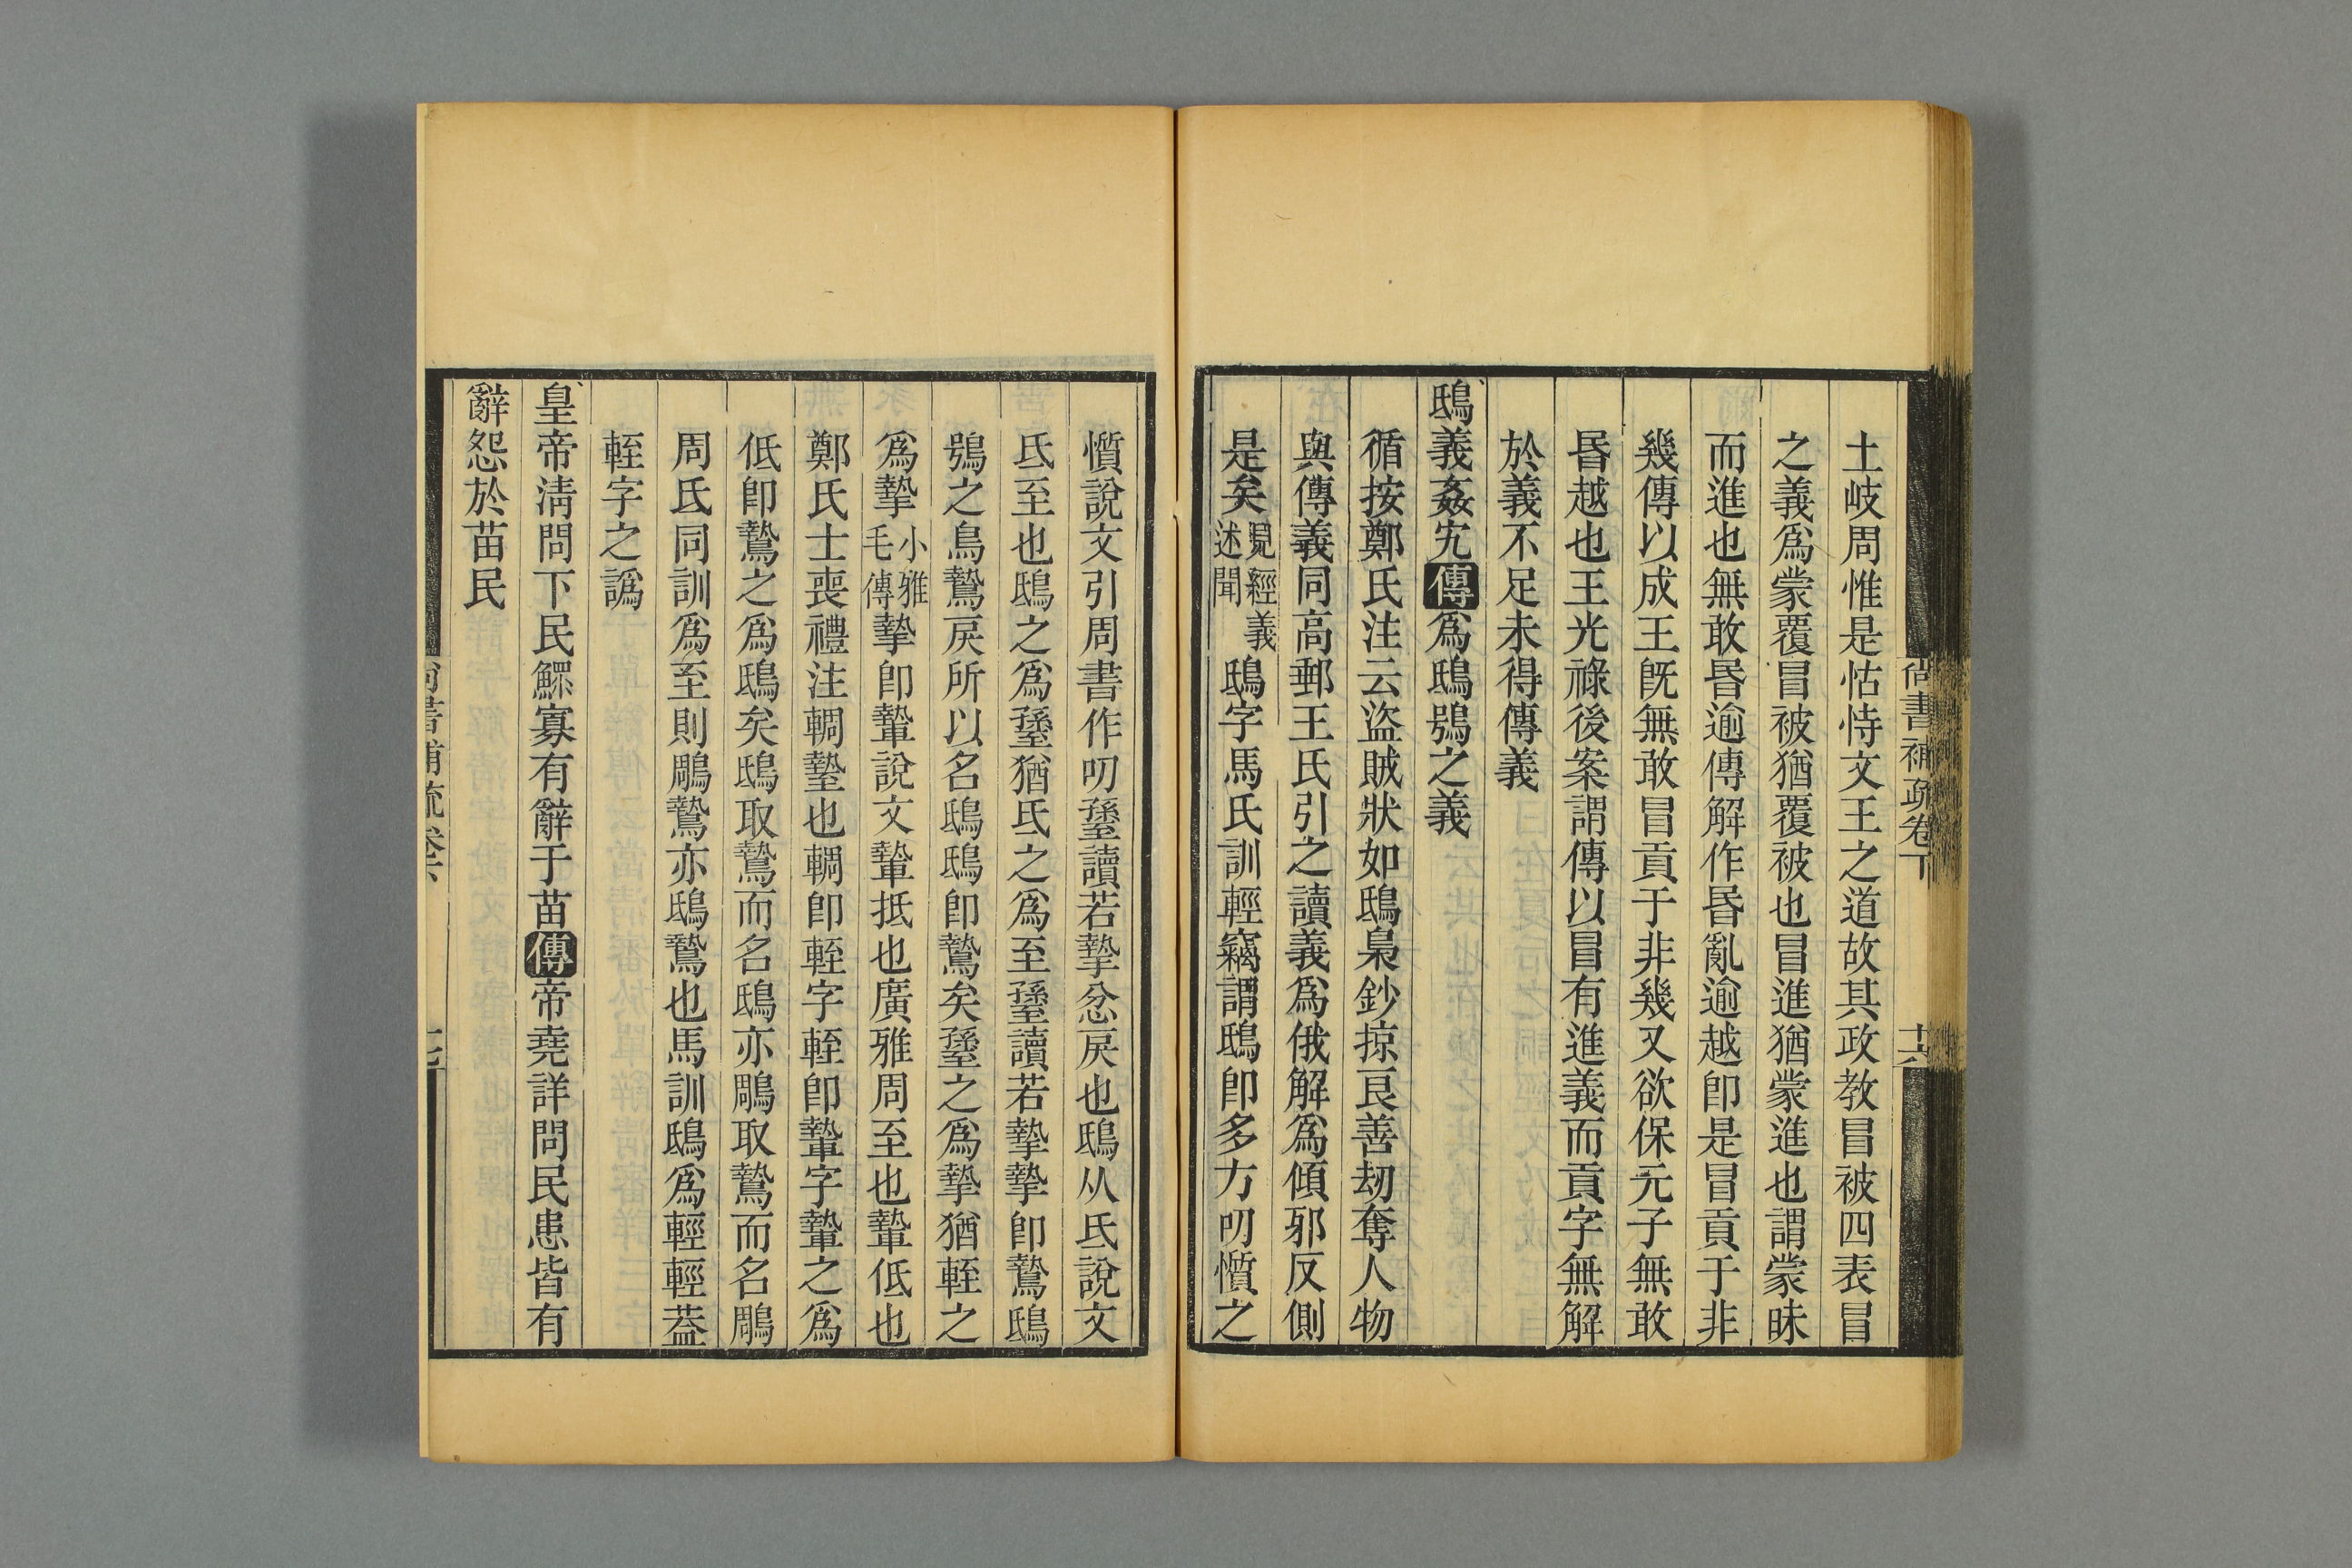 尚書補疏卷下
十六
土岐周惟是怙恃文王之道故其政教冒被四表冒
之義爲蒙覆冒被猶覆被也冒進猶蒙進也謂蒙昧
而進也無敢昬逾傳解作昬亂逾越卽是冒貢于非
幾傳以成王旣無敢冒貢于非幾又欲保元子無敢
昬越也王光祿後案謂傳以冒有進義而貢字無解
於義不足未得傳義
鴟義姦宄傳爲鴟鴞之義
循按鄭氏注云盜賊狀如鴟梟鈔掠良善劫奪人物
與傳義同高郵王氏引之讀義爲俄解爲傾邪反側
是矣見經義述聞鴟字馬氏訓輕竊謂鴟卽多方叨懫之
懫說文引周書作叨𦤶讀若摯忿戾也鴟从氐說文
氐至也鴟之爲𦤶猶氐之爲至𦤶讀若摯摯卽鷙鴟
鴞之鳥鷙戾所以名鴟鴟卽鷙矣𦤶之爲摯猶輊之
爲摯小雅毛傳摯卽䡹說文䡹抵也廣雅周至也䡹低也
鄭氏士喪禮注輖墊也輖卽輊字輊卽䡹字䡹之爲
低卽鷙之爲鴟矣鴟取鷙而名鴟亦鵰取鷙而名鵰
周氐同訓爲至則鵰鷙亦鴟鷙也馬訓鴟爲輕輕葢
輊字之譌
皇帝淸問下民鰥寡有辭于苗傳帝堯詳問民患皆有
辭怨於苗民
十七